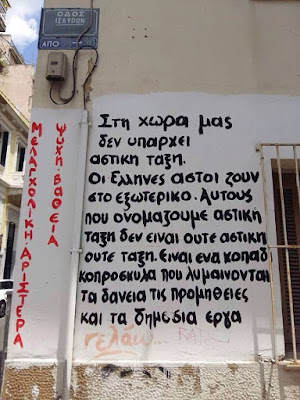 ΟΔΟΣ
ΙΣΑΥΡΩΝ
ΑΠΟ
Στη χωρα μας
δεν υπαρχει
αστικη ταξη.
Οι Ελληνες αστοι ζουν
στο εξωτερικο. Αυτους
που ονομαζουμε αστικη
ταξη δεν ειναι ουτε αστικη
ουτε ταξη. Ειναι ενα κοπαδι
κοπροσκυλα που λυμαινονται
τα δανεια τις προμηθειες
και τα δημοσια εργα
γελάω...
ΨΥΧΗ.ΒΑΘΕΙΑ
ΜΕΛΑΓΧΟΛΙΚΗ.ΑΡΙΣΤΕΡΑ